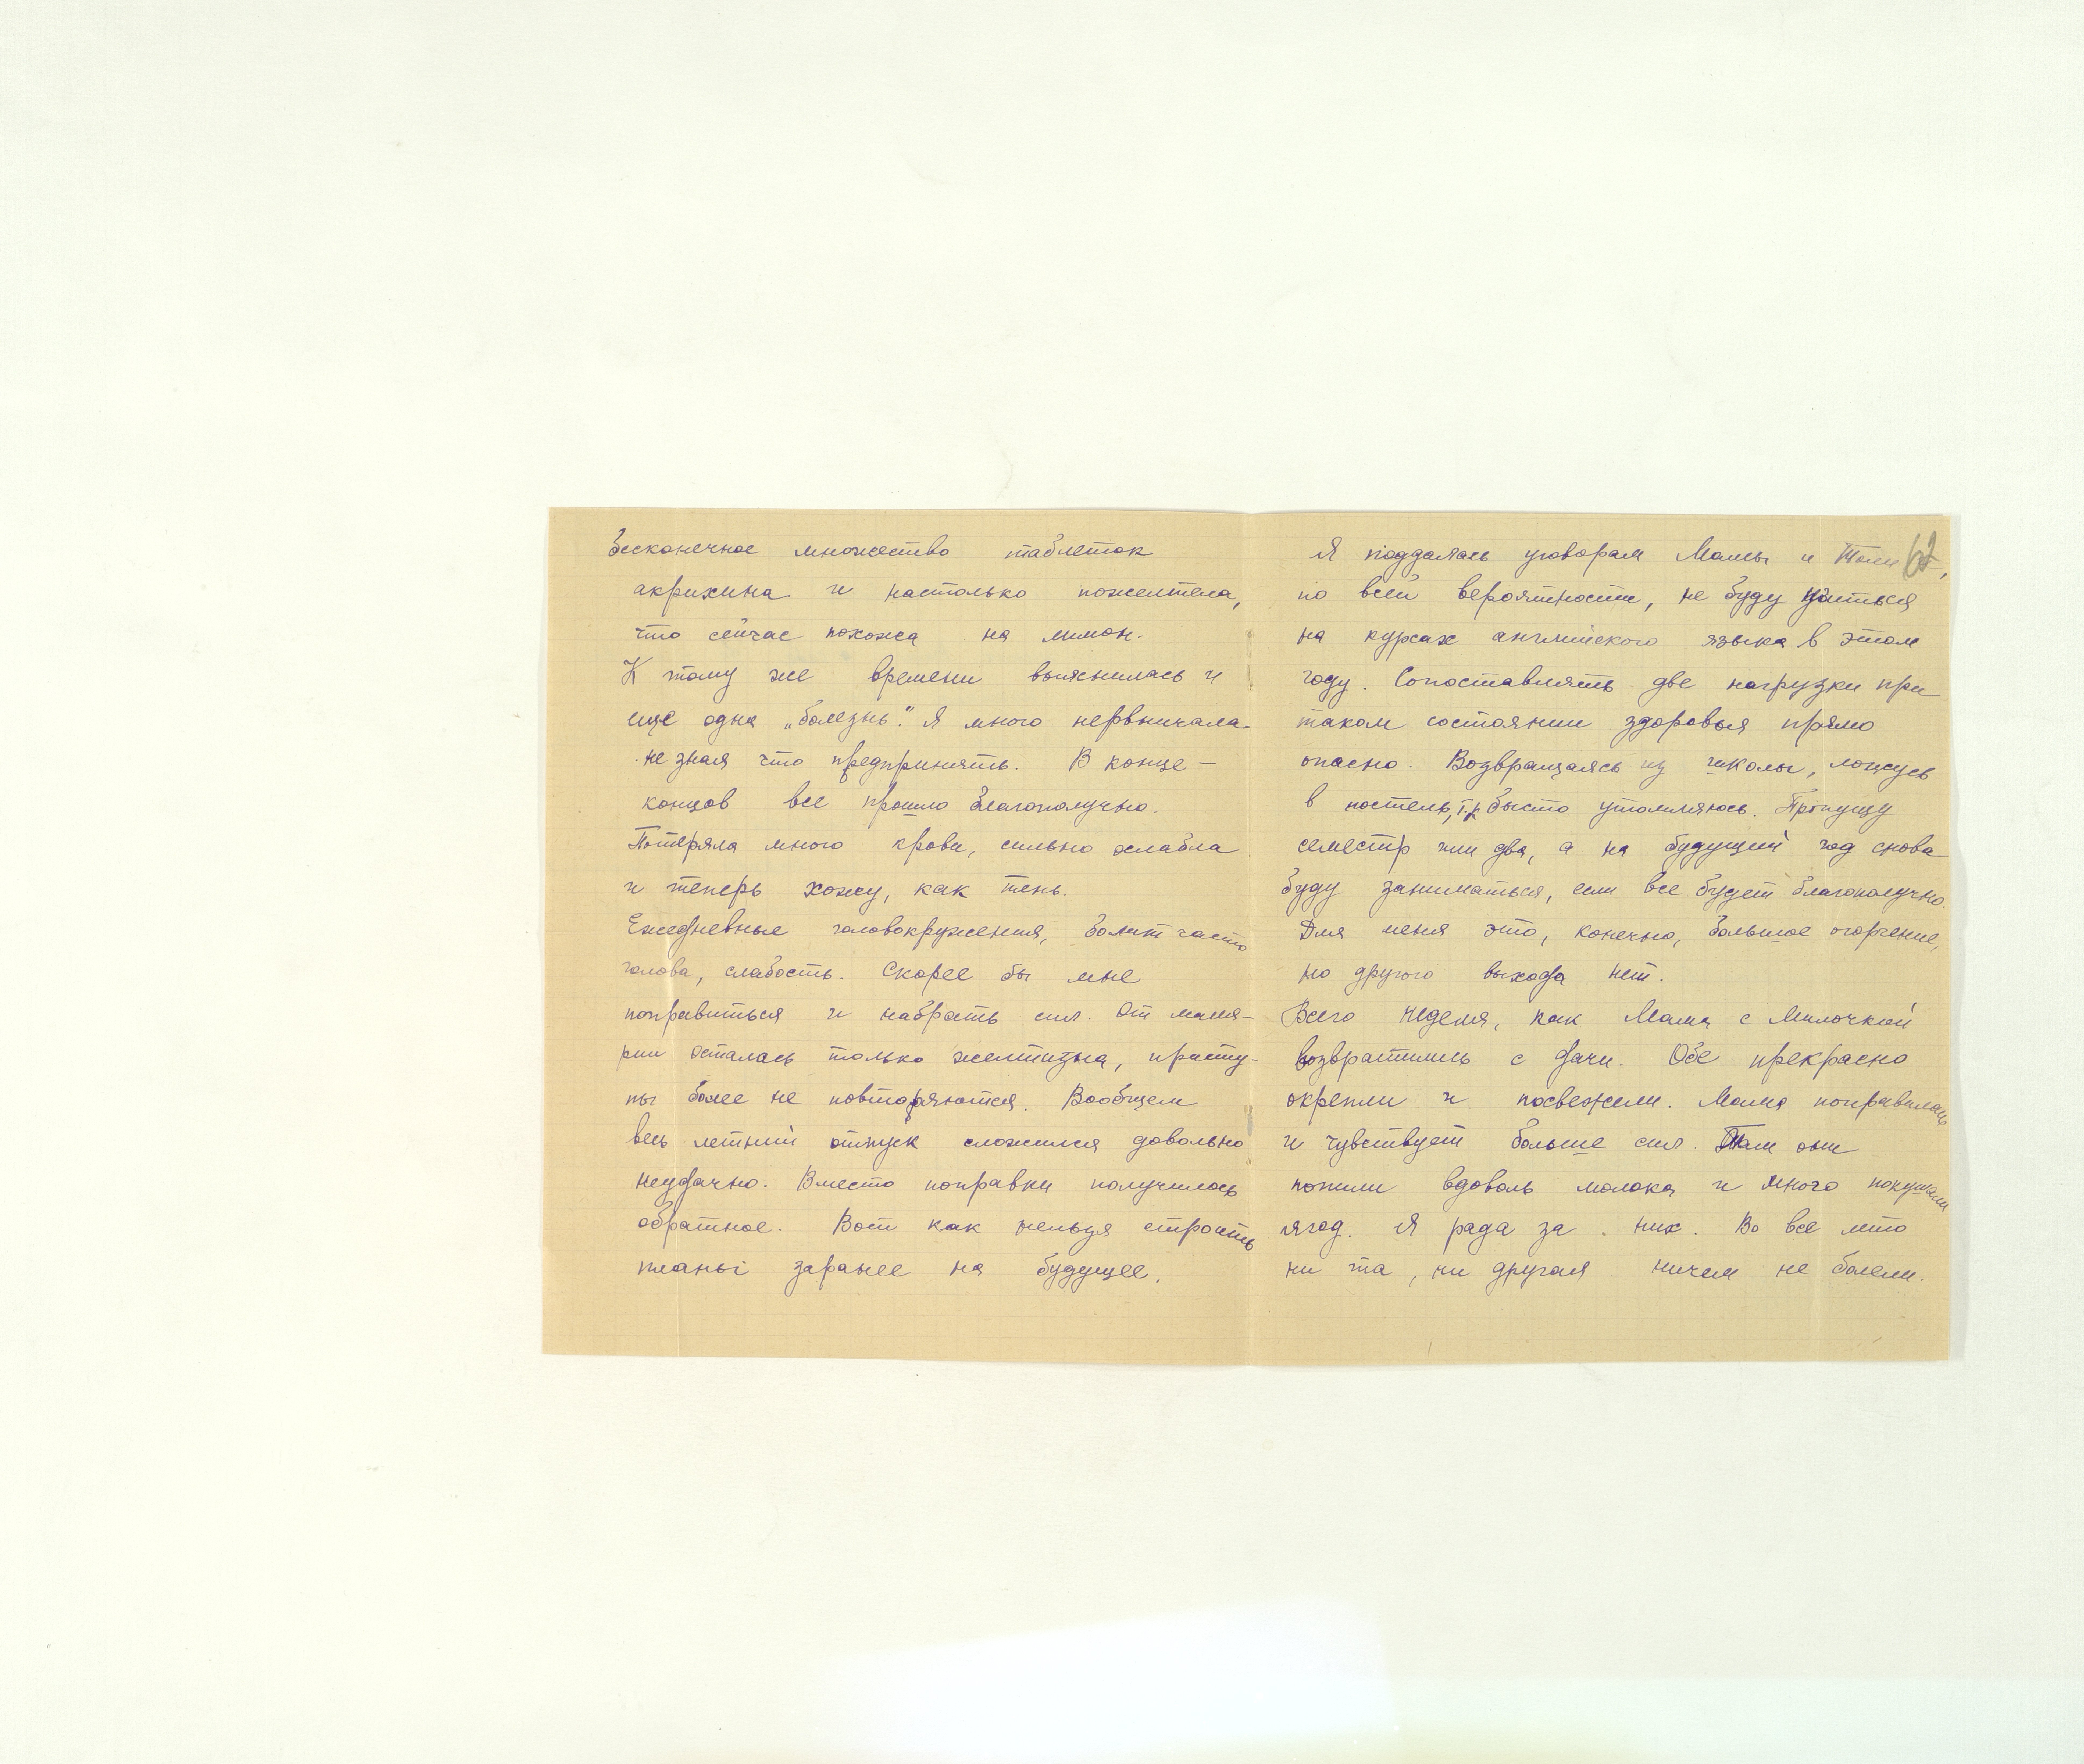 бесконечное множество таблеток
акрихина и настолько пожелтела,
что сейчас похожа на лимон.
К тому же времени выяснилась и
еще одна „болезнь". Я много нервничала
не зная что предпринять. В конце –
концов все прошло благополучно.
Потеряла много крови, сильно ослабла
и теперь хожу, как тень.
Ежедневные головокружения, болит часто
голова, слабость. Скорее бы мне
поправиться и набрать сил. От маля-
рии осталась только желтизна, присту-
пы более не повторяются. Вообщем
весь летний отпуск сложился довольно
неудачно. Вместо поправки получилось
обратное. Вот как нельзя строить
планы заранее на будущее.
62
Я поддалась уговорам Мамы и Толи,
по всей вероятности, не буду учиться
на курсах английского языка в этом
году. Сопоставлять две нагрузки при
таком состоянии здоровья прямо
опасно. Возвращаясь из школы, ложусь
в постель, т.к. бысто утомляюсь. Пропущу
семестр или два, а на будущий год снова
буду заниматься, если все будет благополучно.
Для меня это, конечно, большое огорчение,
но другого выхода нет.
Всего неделя, как Мама с Милочкой
возвратились с дачи. Обе прекрасно
окрепли и посвежели. Мама поправилась
и чувствует больше сил. Там они
попили вдоволь молока и много покушали
ягод. Я рада за них. Во все лето
ни та, ни другая ничем не болели.